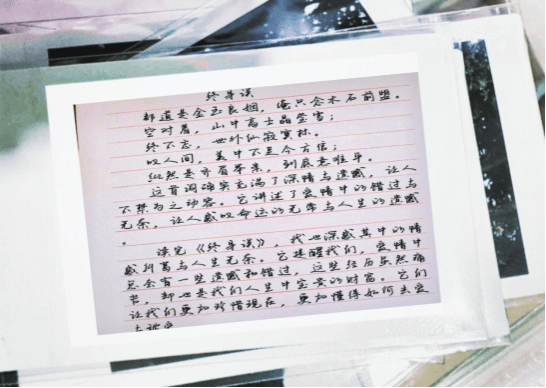 终身误
都道是金玉良姻，俺只念木石前盟。
空对着，山中高士晶莹雪；
终不忘，世外仙寂寞林。
叹人间，美中不足今方信；
纵然是齐眉举案，到底意难平。
这首词确实充满了深情与遗憾，让人
不禁为之动容。它讲述了爱情中的错过与
无奈，让人感叹命运的无常与人生的遗憾
。
读完《终身误》，我也深感其中的情
感纠葛与人生无奈。它提醒我们，爱情中
总会有一些遗憾和错过，这些经历虽然痛
苦，却也是我们人生中宝贵的财富。它们
让我们更加珍惜现在，更加懂得如何去爱